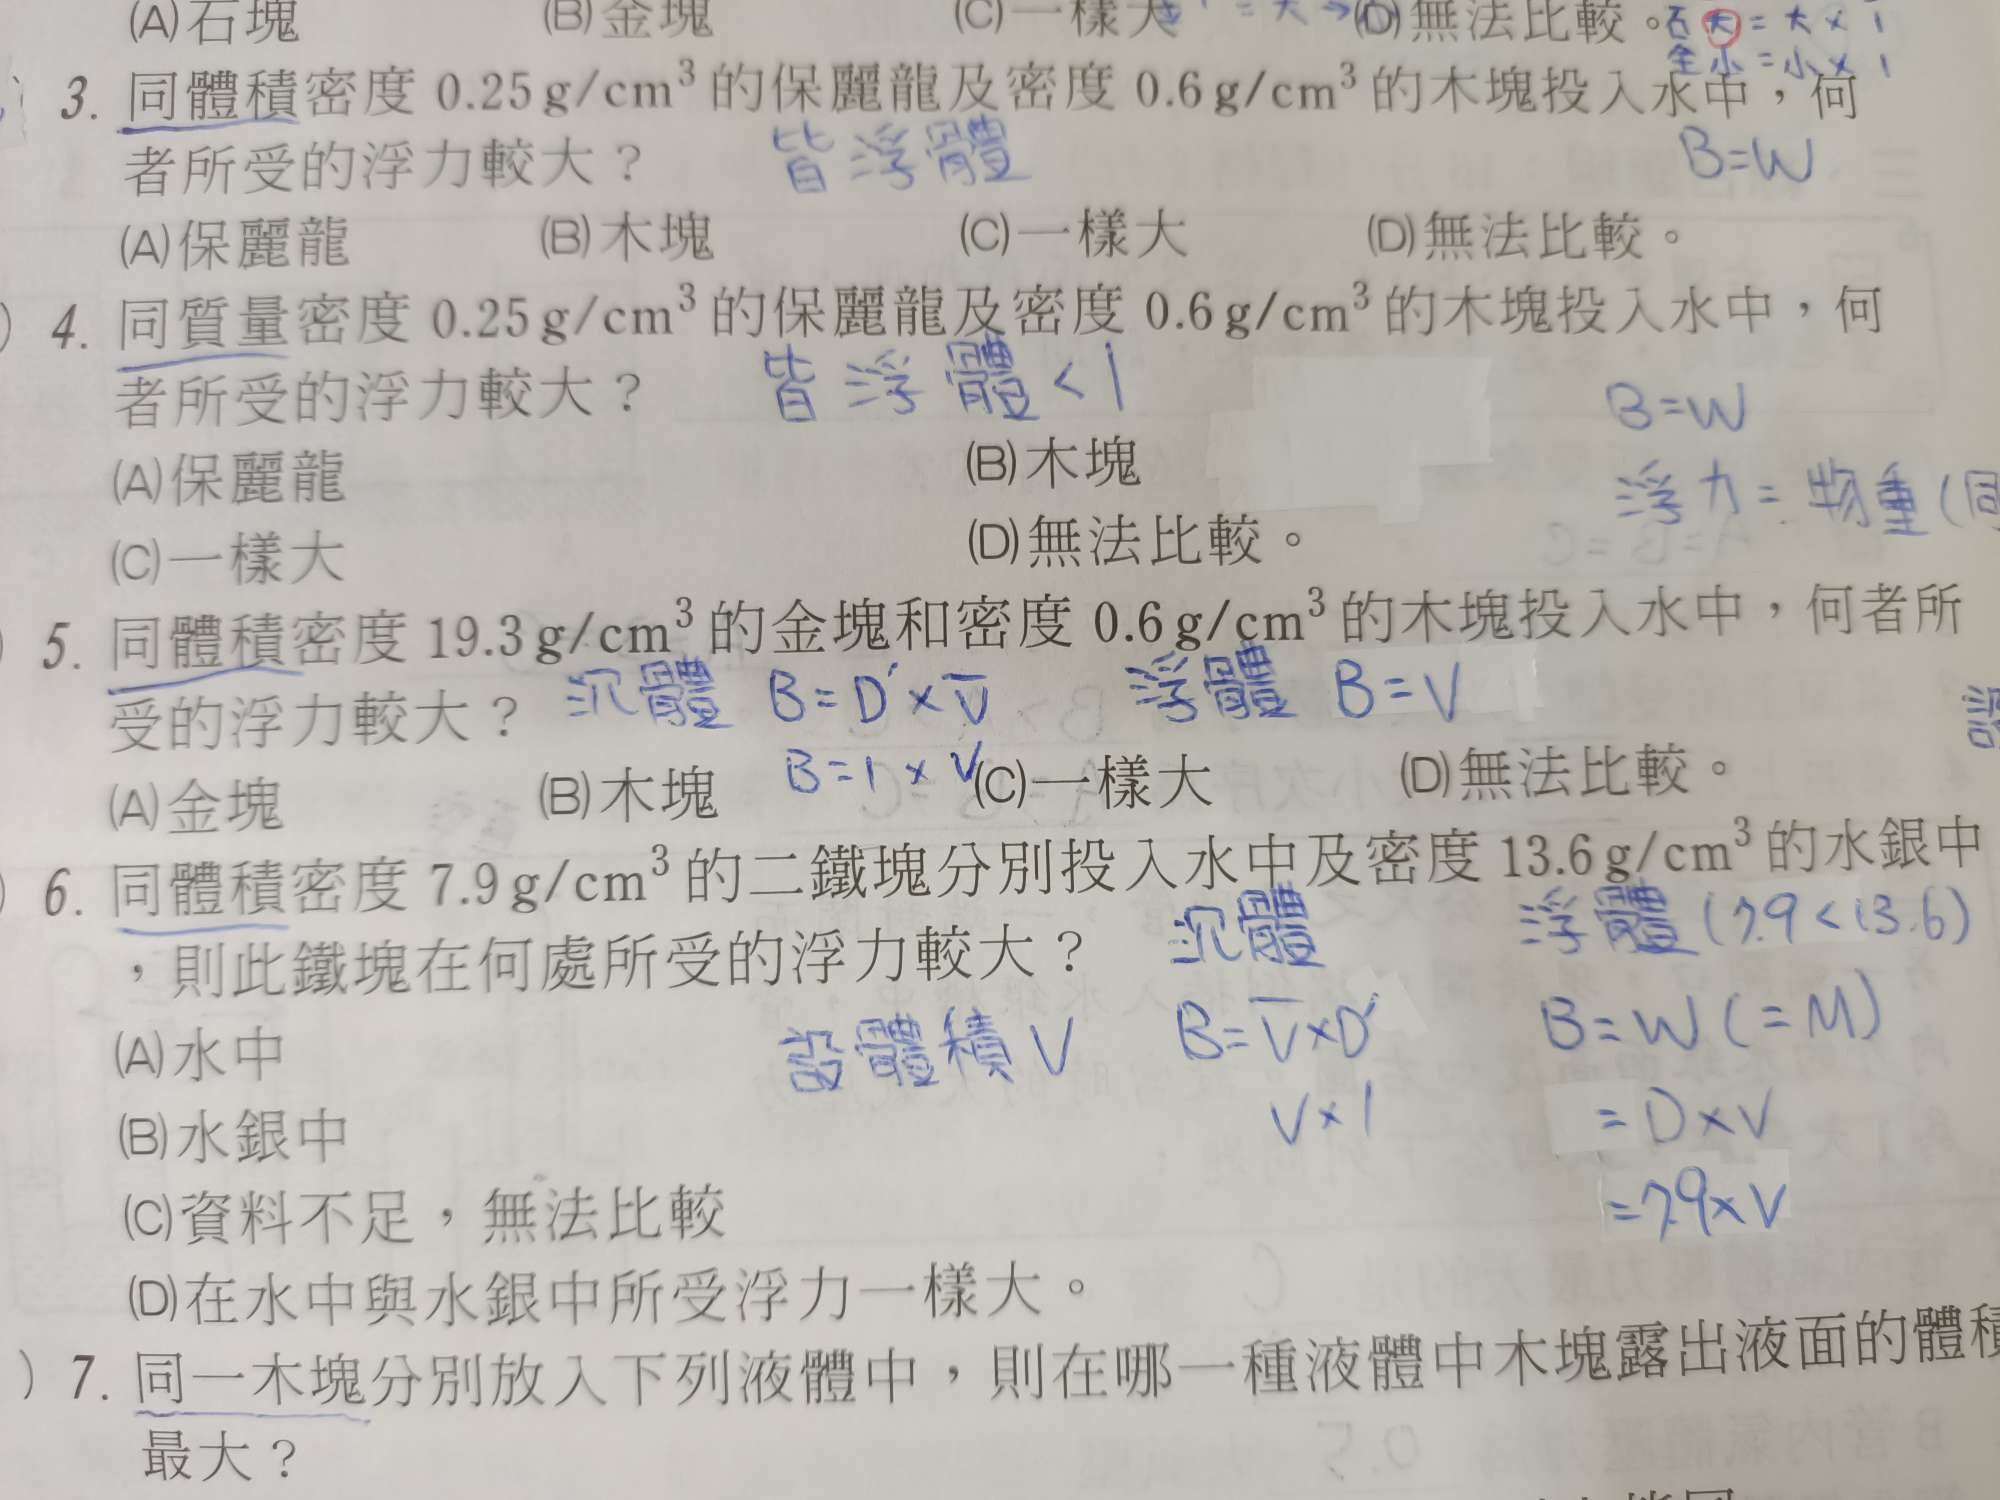 (A)石塊 (B)金塊 (C)一樣大 (D)無法比較。
石大=大×1
金小=小×1
3. 同體積密度 0.25 g/cm³ 的保麗龍及密度 0.6 g/cm³ 的木塊投入水中，何
者所受的浮力較大？ 皆浮體 B=W
(A)保麗龍 (B)木塊 (C)一樣大 (D)無法比較。
) 4. 同質量密度 0.25 g/cm³ 的保麗龍及密度 0.6 g/cm³ 的木塊投入水中，何
者所受的浮力較大？ 皆浮體<1 B=W
(A)保麗龍 (B)木塊 浮力=物重(同
(C)一樣大 (D)無法比較。
) 5. 同體積密度 19.3 g/cm³ 的金塊和密度 0.6 g/cm³ 的木塊投入水中，何者所
受的浮力較大？ 沉體 B=D'×V 浮體 B=V
B=1×V
(A)金塊 (B)木塊 (C)一樣大 (D)無法比較。
) 6. 同體積密度 7.9 g/cm³ 的二鐵塊分別投入水中及密度 13.6 g/cm³ 的水銀中
，則此鐵塊在何處所受的浮力較大？ 沉體 浮體(7.9<13.6)
(A)水中 設體積V B=V×D' B=W(=M)
(B)水銀中 V×1 =D×V
(C)資料不足，無法比較 =7.9×V
(D)在水中與水銀中所受浮力一樣大。
) 7. 同一木塊分別放入下列液體中，則在哪一種液體中木塊露出液面的體積
最大？